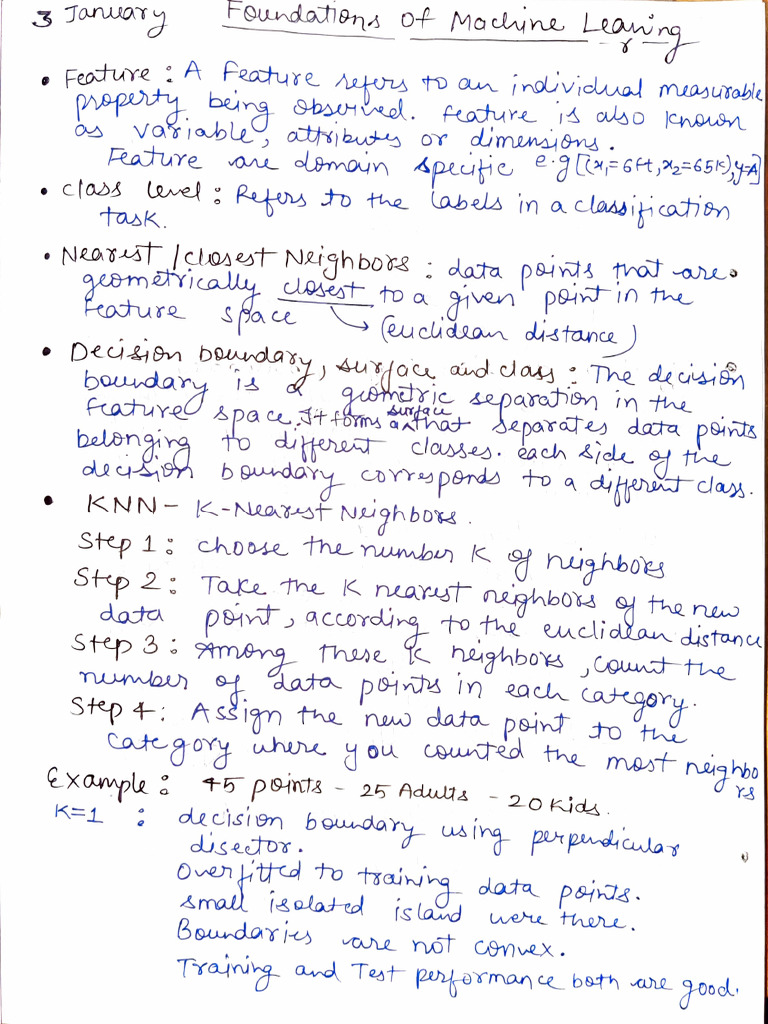 3 January Foundations of Machine Learing
r
• Feature : A Feature refers to an individual measurable
property being observed. Feature is also known
as variable, attributes or dimensions.
Feature are domain specific e.g [(x₁=6ft, x₂=65K), y=A]
• Class level : Refers to the labels in a classification
task.
• Nearest / Closest Neighbors : data points that are
geometrically closest to a given point in the
Feature space → (euclidean distance)
• Decision boundary, surface and class : The decision
boundary is a geometric separation in the
feature space. It forms a surface that separates data points
belonging to different classes. each side of the
decision boundary corresponds to a different class.
• KNN - K-Nearest Neighbors.
Step 1 : choose the number K of neighbors
Step 2 : Take the K nearest neighbors of the new
data point, according to the euclidean distance
Step 3 : Among these K neighbors, count the
number of data points in each category.
Step 4 : Assign the new data point to the
category where you counted the most neighbo
rs
Example : 45 points - 25 Adults - 20 Kids.
K=1 : decision boundary using perpendicular
disector.
Overfitted to training data points.
small isolated island were there.
Boundaries are not convex.
Training and Test performance both are good.